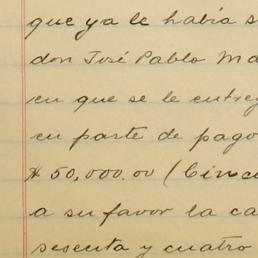 que ya le había s
don José Pablo Ma
en que se le entreg
en parte de pago
$50,000.00 (Cinc
a su favor la ca
sesenta y cuatro